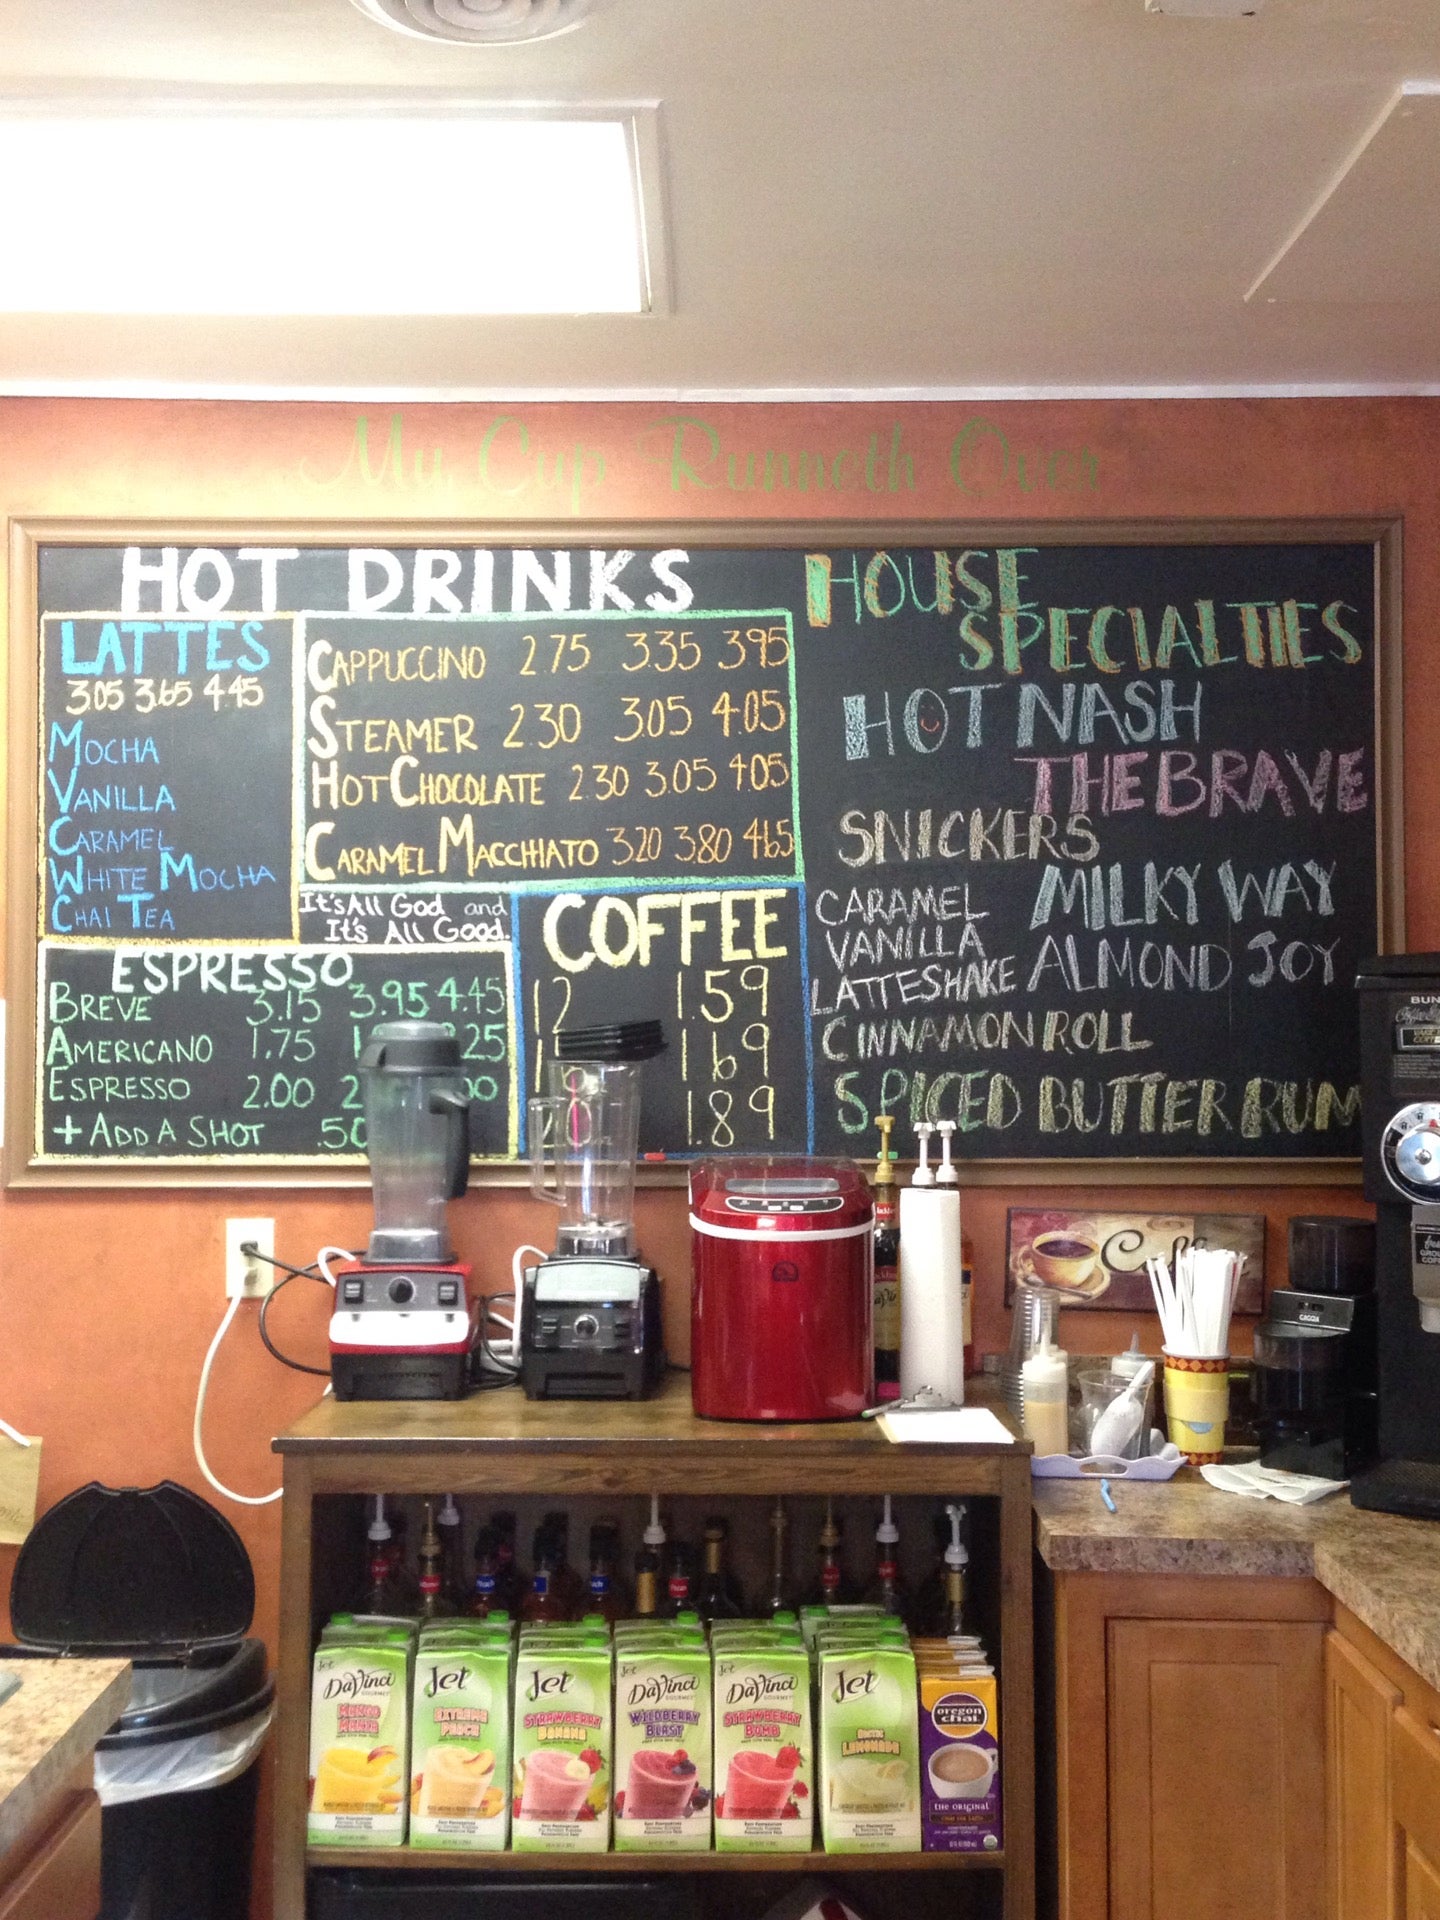 My Cup Runneth Over
HOT DRINKS
LATTES
3.05 3.65 4.45
MOCHA
VANILLA
CARAMEL
WHITE MOCHA
CHAI TEA
CAPPUCCINO 2.75 3.35 3.95
STEAMER 2.30 3.05 4.05
HOT CHOCOLATE 2.30 3.05 4.05
CARAMEL MACCHIATO 3.20 3.80 4.65
It's All God and
It's All Good.
ESPRESSO
BREVE 3.15 3.95 4.45
AMERICANO 1.75
ESPRESSO 2.00
+ ADD A SHOT .50
COFFEE
12 1.59
1.69
20 1.89
HOUSE
SPECIALTIES
HOT NASH
THE BRAVE
SNICKERS
MILKY WAY
CARAMEL
VANILLA
LATTESHAKE
ALMOND JOY
CINNAMON ROLL
SPICED BUTTER RUM
BUNN
GAGGIA
Jet
DaVinci
GOURMET
MANGO
MANIA
Jet
EXTREME
PEACH
Jet
STRAWBERRY
BANANA
Jet
DaVinci
GOURMET
WILDBERRY
BLAST
Jet
DaVinci
GOURMET
STRAWBERRY
BOMB
Jet
LEMONADE
oregon
chai
THE ORIGINAL